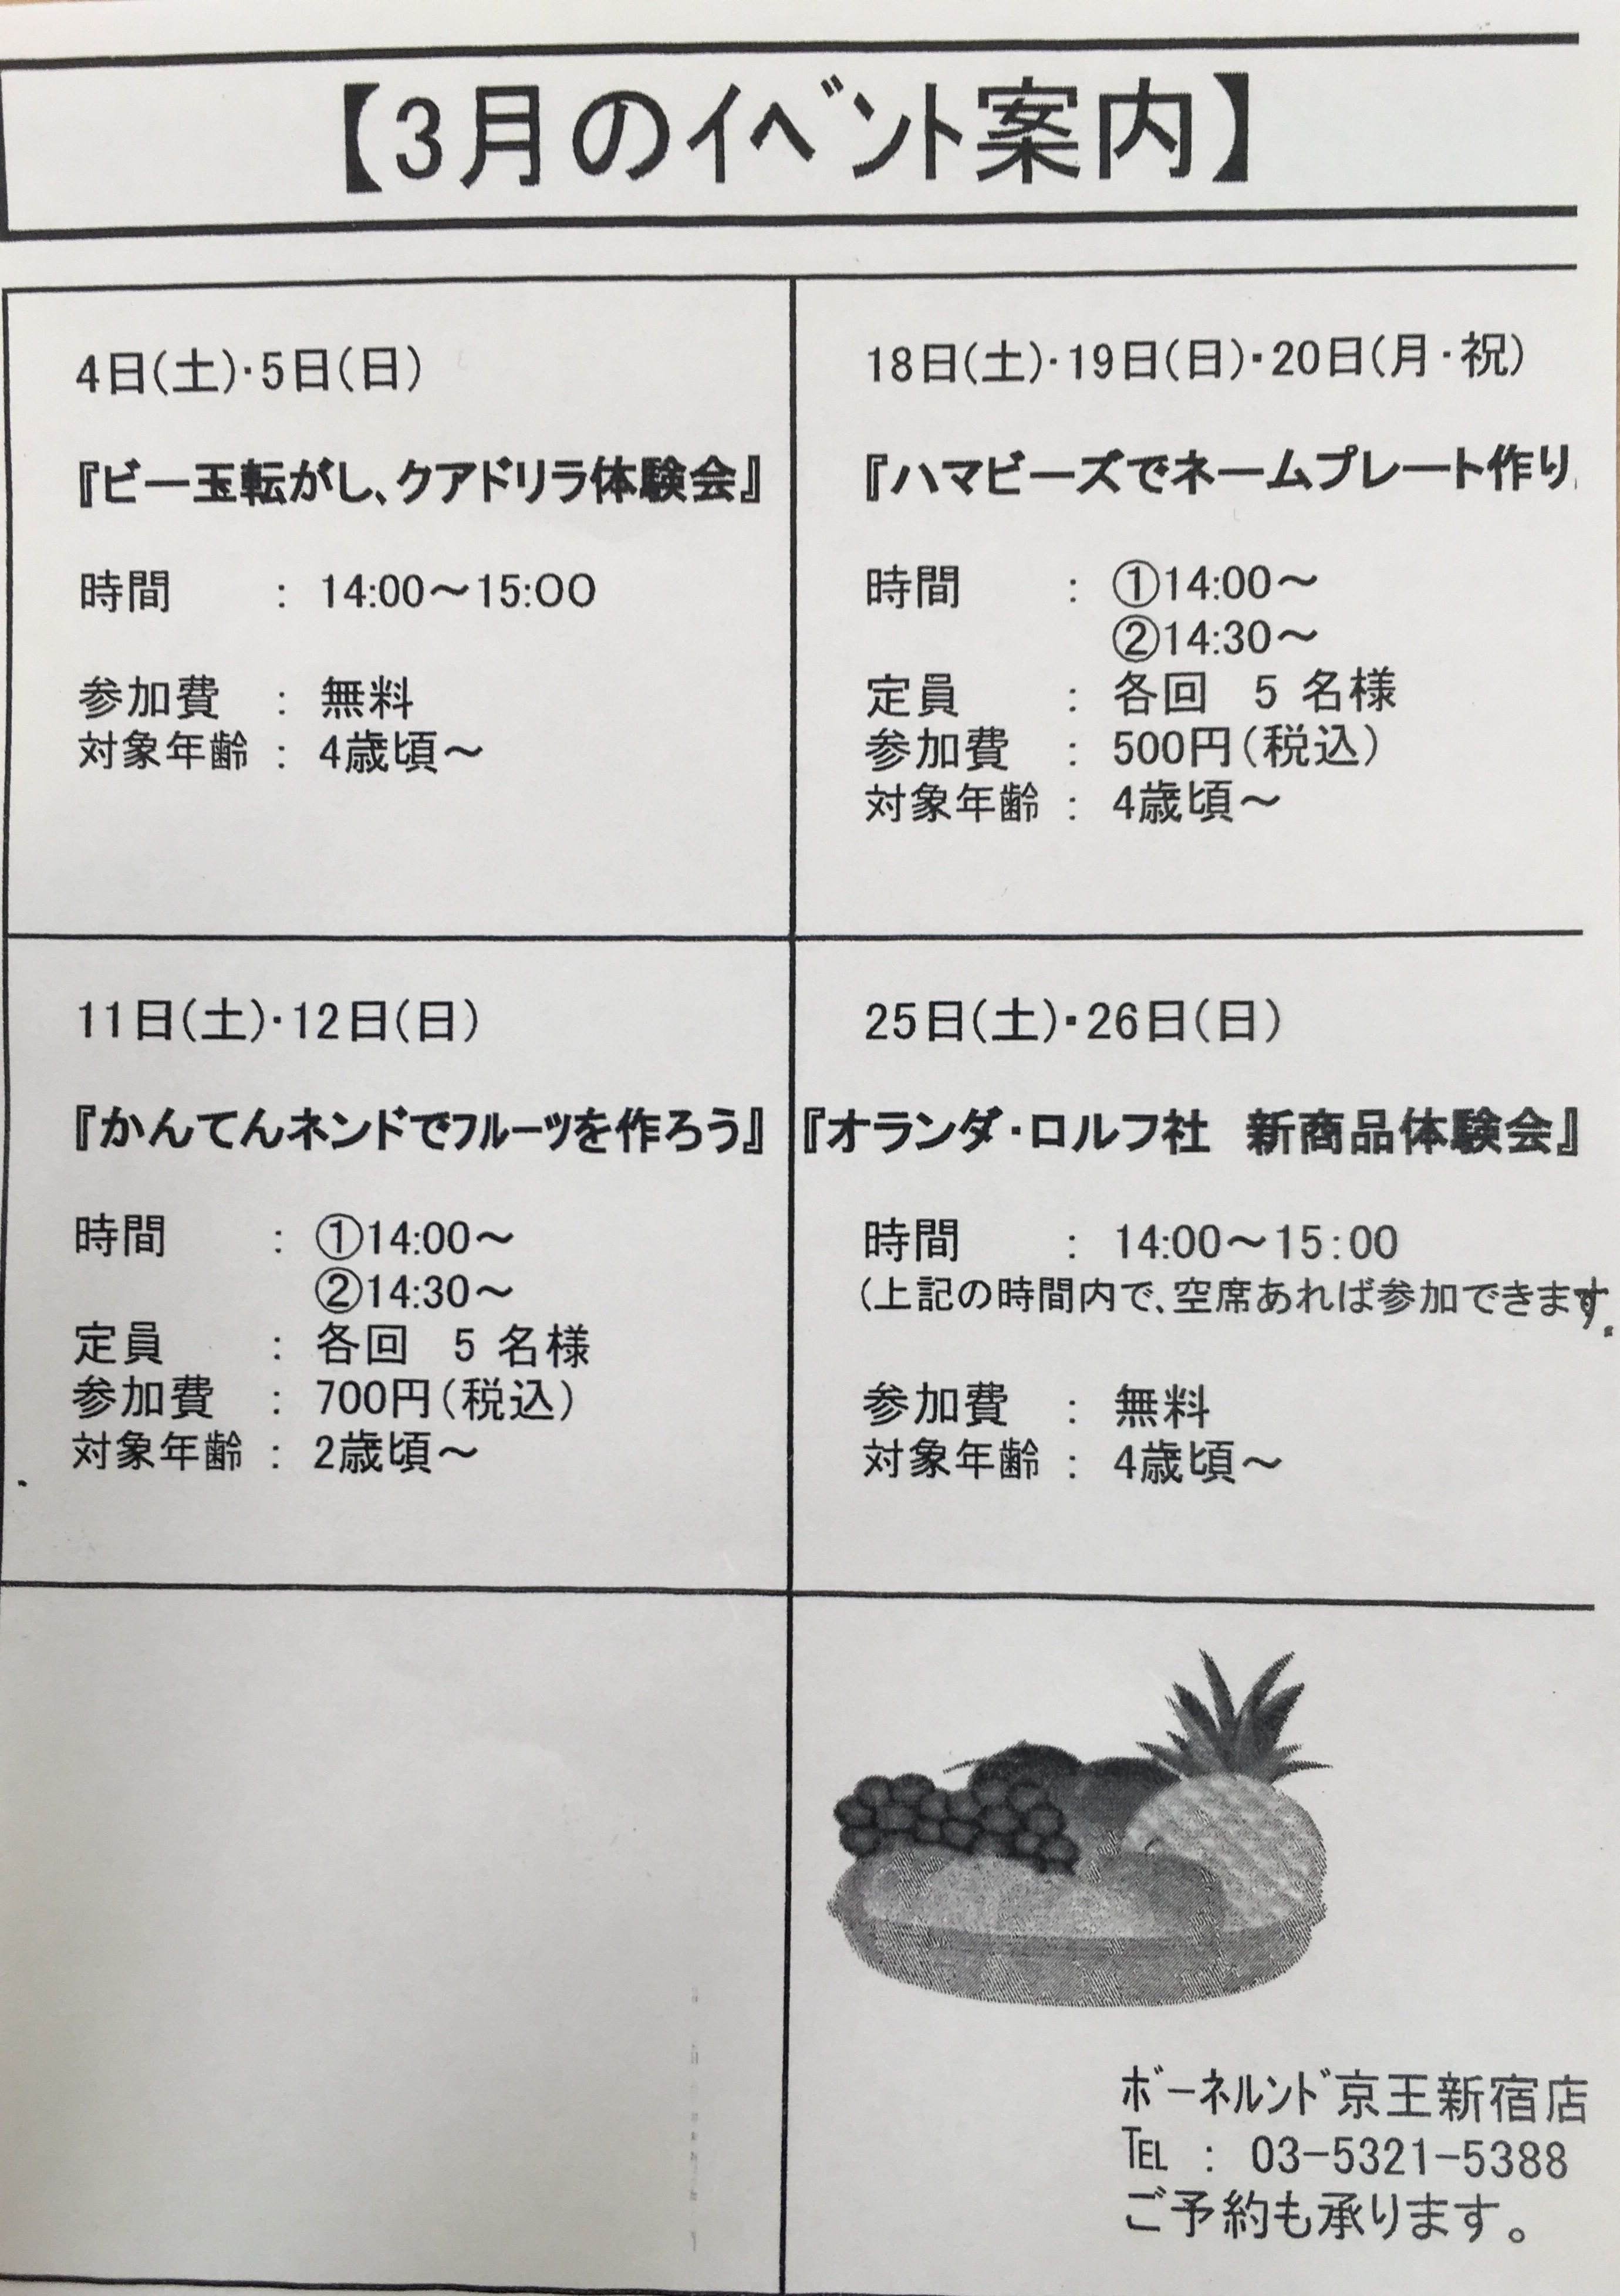 【3月のｲﾍﾞﾝﾄ案内】
4日(土)･5日(日)
『ビー玉転がし、クアドリラ体験会』
時間 : 14:00～15:00
参加費 : 無料
対象年齢 : 4歳頃～
18日(土)･19日(日)･20日(月･祝)
『ハマビーズでネームプレート作り
時間 : ①14:00～
②14:30～
定員 : 各回 5 名様
参加費 : 500円(税込)
対象年齢 : 4歳頃～
11日(土)･12日(日)
『かんてんネンドでﾌﾙｰﾂを作ろう』
時間 : ①14:00～
②14:30～
定員 : 各回 5 名様
参加費 : 700円(税込)
対象年齢 : 2歳頃～
25日(土)･26日(日)
『オランダ･ロルフ社 新商品体験会』
時間 : 14:00～15:00
(上記の時間内で、空席あれば参加できます.
参加費 : 無料
対象年齢 : 4歳頃～
ﾎﾞｰﾈﾙﾝﾄﾞ京王新宿店
TEL : 03-5321-5388
ご予約も承ります。